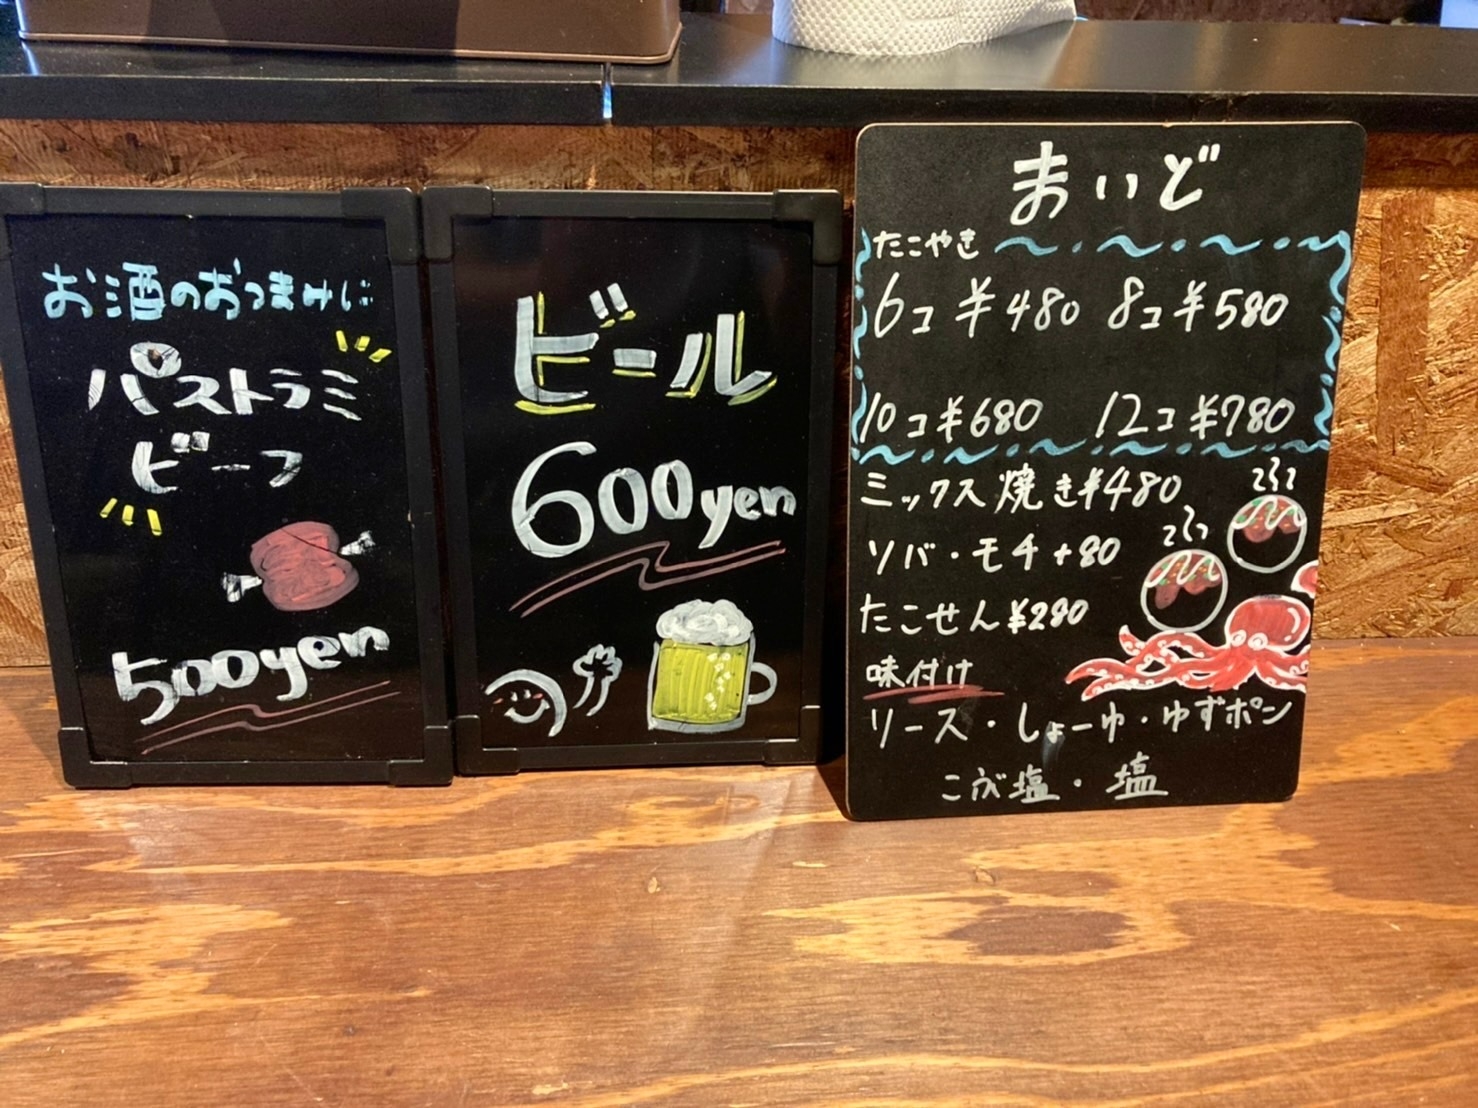 お酒のおつまみに
パストラミ
ビーフ
500yen
ビール
600yen
まいど
たこやき
6コ ¥480 8コ ¥580
10コ ¥680 12コ ¥780
ミックス焼き ¥480
ソバ・モチ +80
たこせん ¥280
味付け
ソース・しょーゆ・ゆずポン
こぶ塩・塩